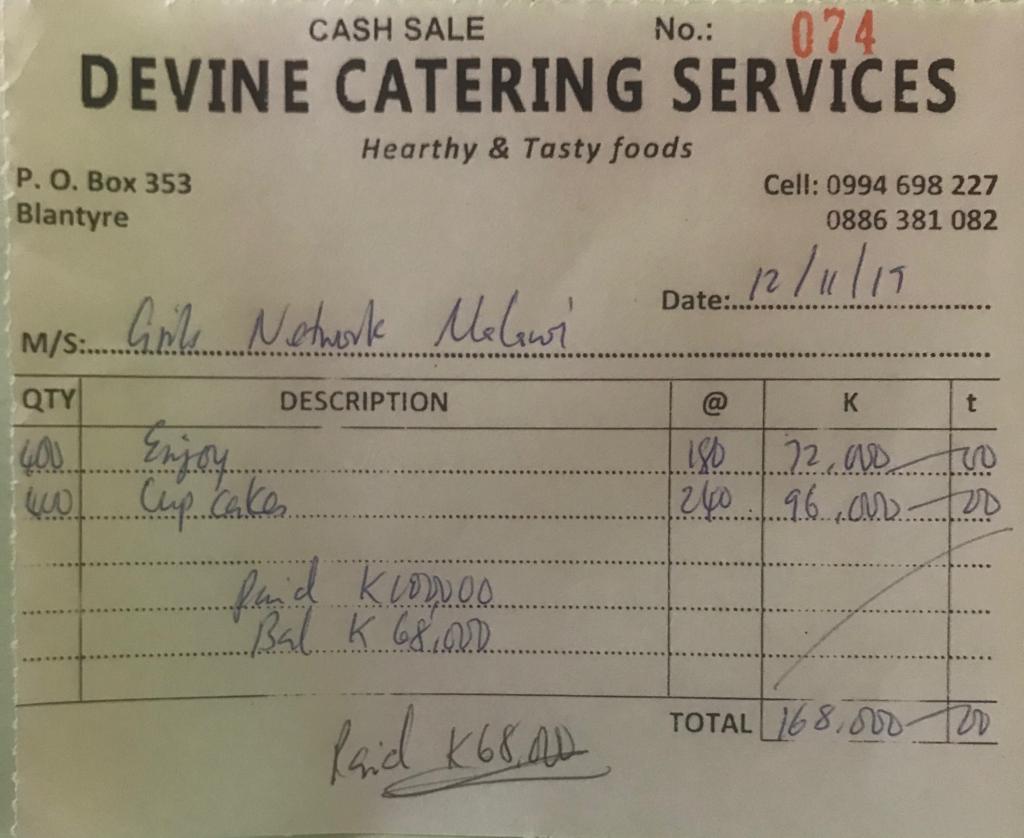 CASH SALE No.: 074
DEVINE CATERING SERVICES
Hearthy & Tasty foods
P. O. Box 353 Cell: 0994 698 227
Blantyre 0886 381 082
Date: 12/11/19
M/S: Girls Network Malawi
QTY DESCRIPTION @ K t
400 Enjoy 180 72,000 00
400 Cup cakes 240 96,000 00
Paid K100,000
Bal K 68,000
TOTAL 168,000 00
Paid K68,000